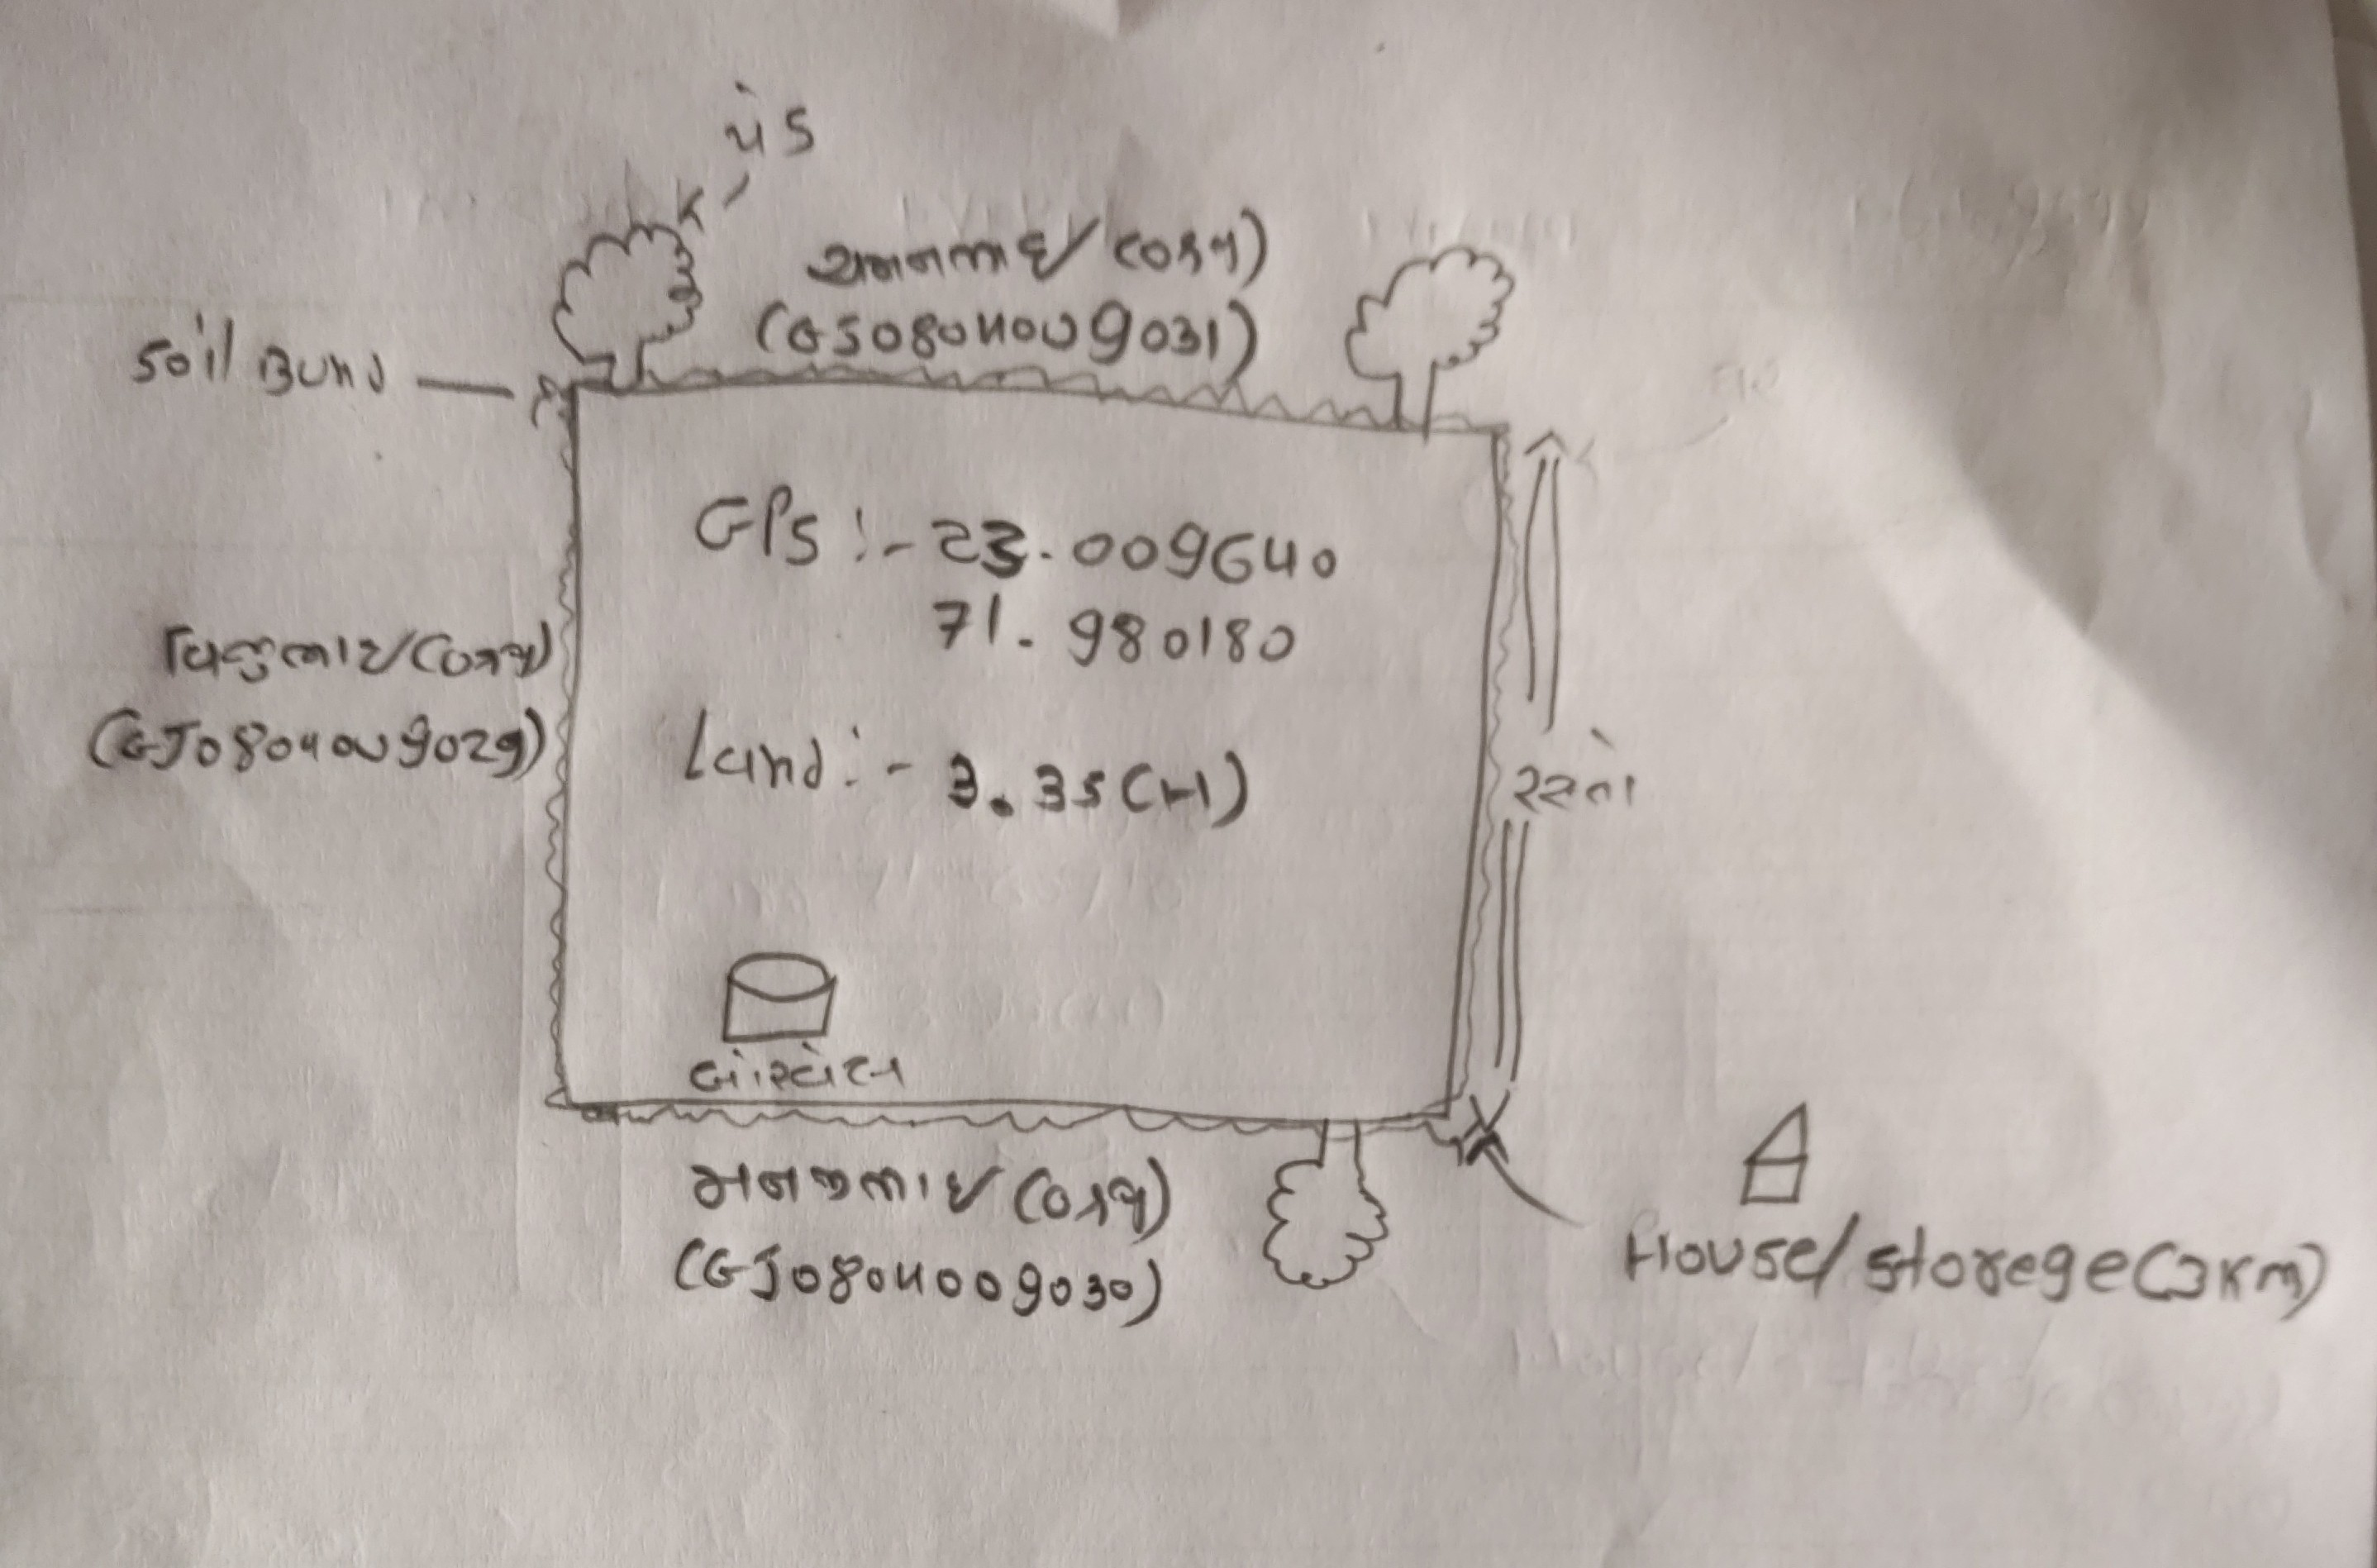 પેડ
અમનભાઈ (OકY)
(GJ0804009031)
Soil Bund
GPS :- 23.009640
71.980180
વિજુભાઈ
(GJ0804009029)
Land :- 3.35 (H)
રસ્તો
બોરવેલ
મનજીભાઈ
(GJ0804009030)
House/storege (3Km)